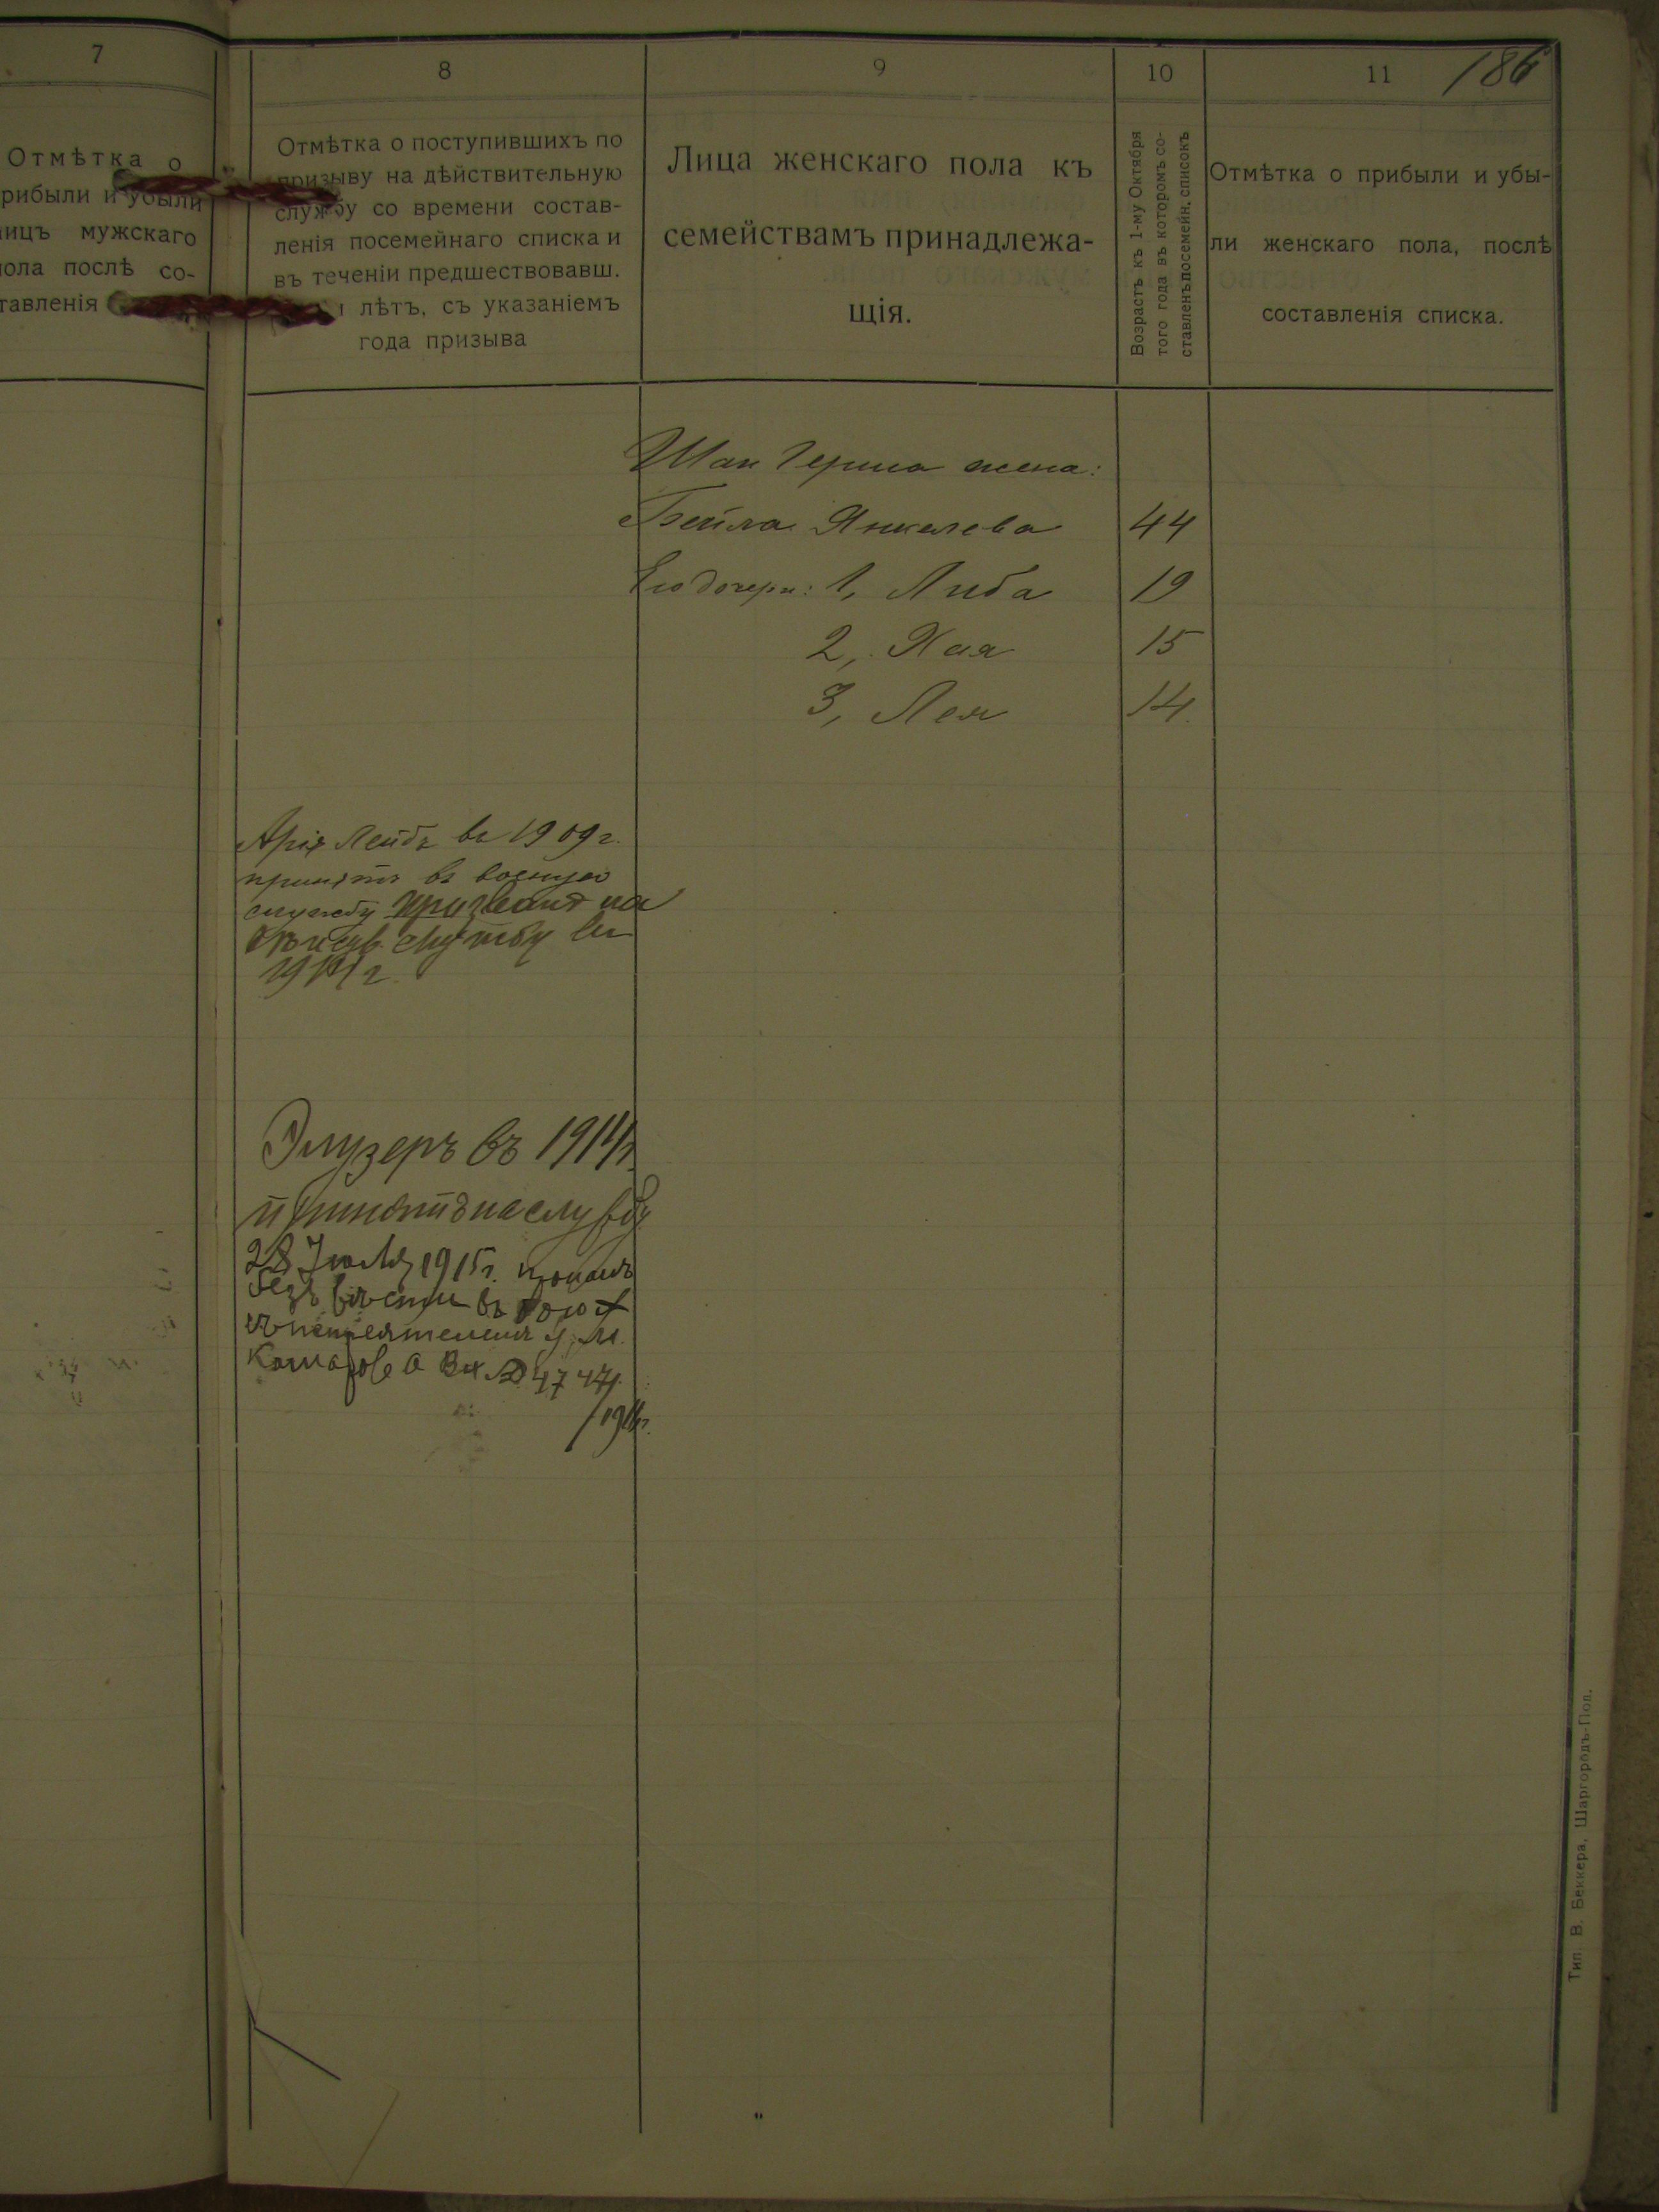 7
Отмѣтка о
рибыли и убыли
ицъ мужскаго
ола послѣ со-
тавленія
8
Отмѣтка о поступившихъ по
призыву на дѣйствительную
службу со времени состав-
ленія посемейнаго списка и
въ теченіи предшествовавш.
лѣтъ, съ указаніемъ
года призыва
9
Лица женскаго пола къ
семействамъ принадлежа-
щія.
10
Возрастъ къ 1-му Октября
того года въ которомъ со-
ставленъ посемейн. списокъ
11
186
Отмѣтка о прибыли и убы-
ли женскаго пола, послѣ
составленія списка.
жена:
Бейла Янкелева 44
Его дочери: 1, Либа 19
2, Хая 15
3, Лея 14
Арія Лейбъ въ 1909 г.
принятъ въ военную
службу призванъ на
службу въ
Элузеръ въ 1914 г.
принятъ на службу
28 Іюля 1915 г. пропалъ
безъ вѣсти въ бою
съ непріятелемъ у м.
Тип. В. Беккера, Шаргородъ-Под.